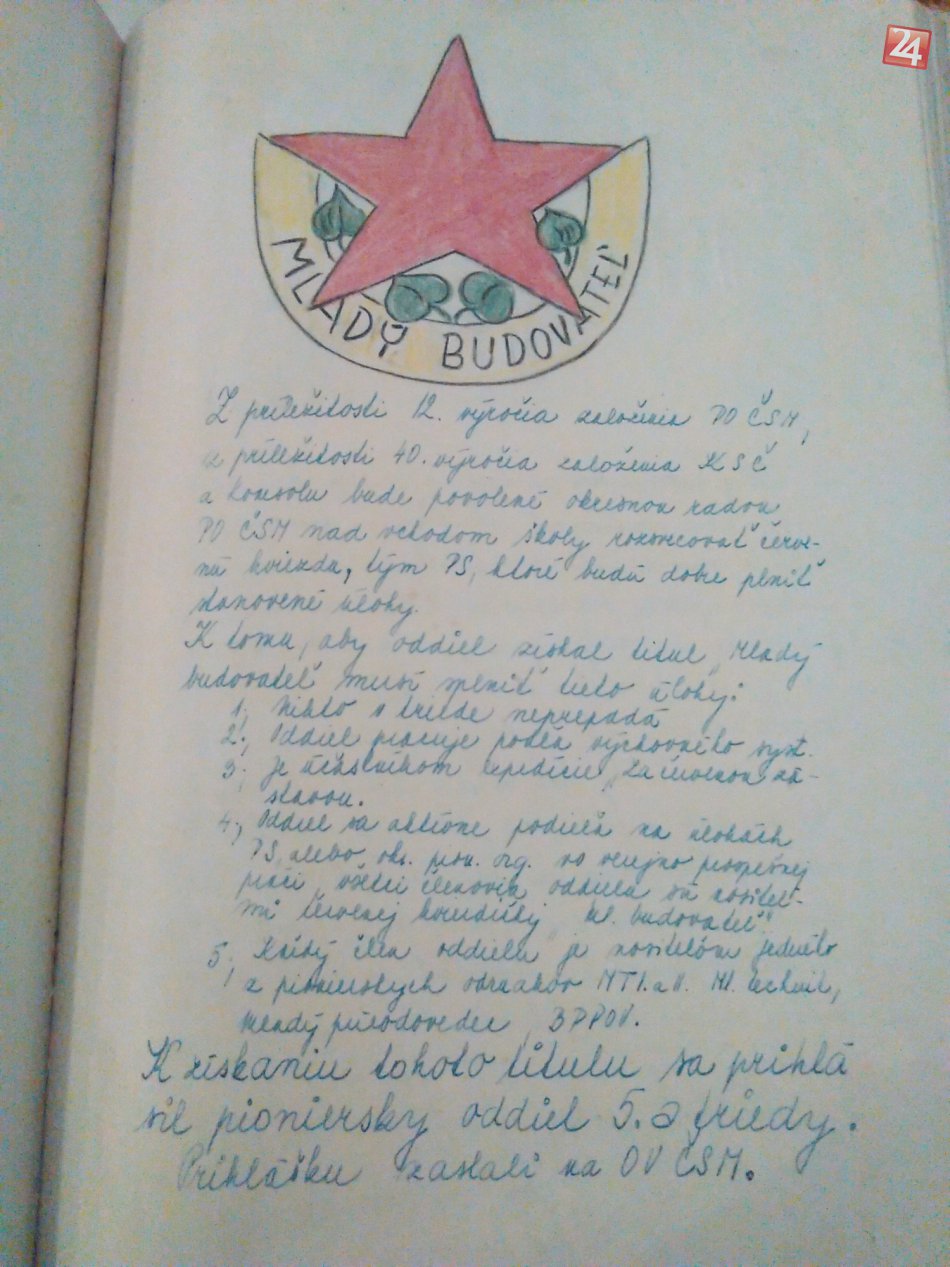 24
MLADÝ BUDOVATEĽ
Z príležitosti 12. výročia založenia PO ČSM,
z príležitosti 40. výročia založenia KSČ
a Komsolu bude povolené okresnou radou
PO ČSM nad vchodom školy rozsvecovať červe-
nú hviezdu, tým PS, ktoré budú dobre plniť
stanovené úlohy.
K tomu, aby oddiel získal titul „Mladý
budovateľ musí splniť tieto úlohy:
1, Nikto v triede neprepadá
2, Oddiel pracuje podľa výchovného syst.
3, Je účastníkom expedície „Za červenou zá-
stavou.
4, Oddiel sa aktívne podieľa na úlohách
PS, alebo ok. pion. org. vo verejno prospešnej
práci všetci členovia oddielu sú nositeľ-
mi červenej hviezdičky „Ml. budovateľ"
5, Každý člen oddielu je nositeľom jedného
z pionierskych odznakov MT I. a II. Ml. technik,
Mladý prírodovedec, BPPOV.
K získaniu tohoto titulu sa prihlá
sil pioniersky oddiel 5. a triedy.
Prihlášku zaslali na OV ČSM.